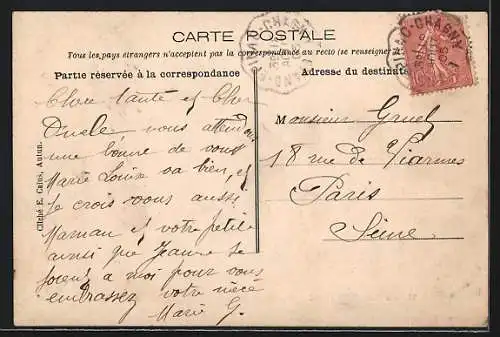 CARTE POSTALE
Tous les pays étrangers n'acceptent pas la correspondance au recto (se renseigner
Partie réservée à la correspondance
Adresse du destinat
Cliché E. Calus, Autun.
Chère tante et Cher
Oncle, vous attend
une bonne de vous
Marie Louise va bien, et
je crois vous aussi
Maman et votre petite
ainsi que Jeanne se
à moi pour vous
embrasser votre nièce
Marie G.
Monsieur Gruel
18 rue de Viarmes
Paris
Seine
CHAGNY